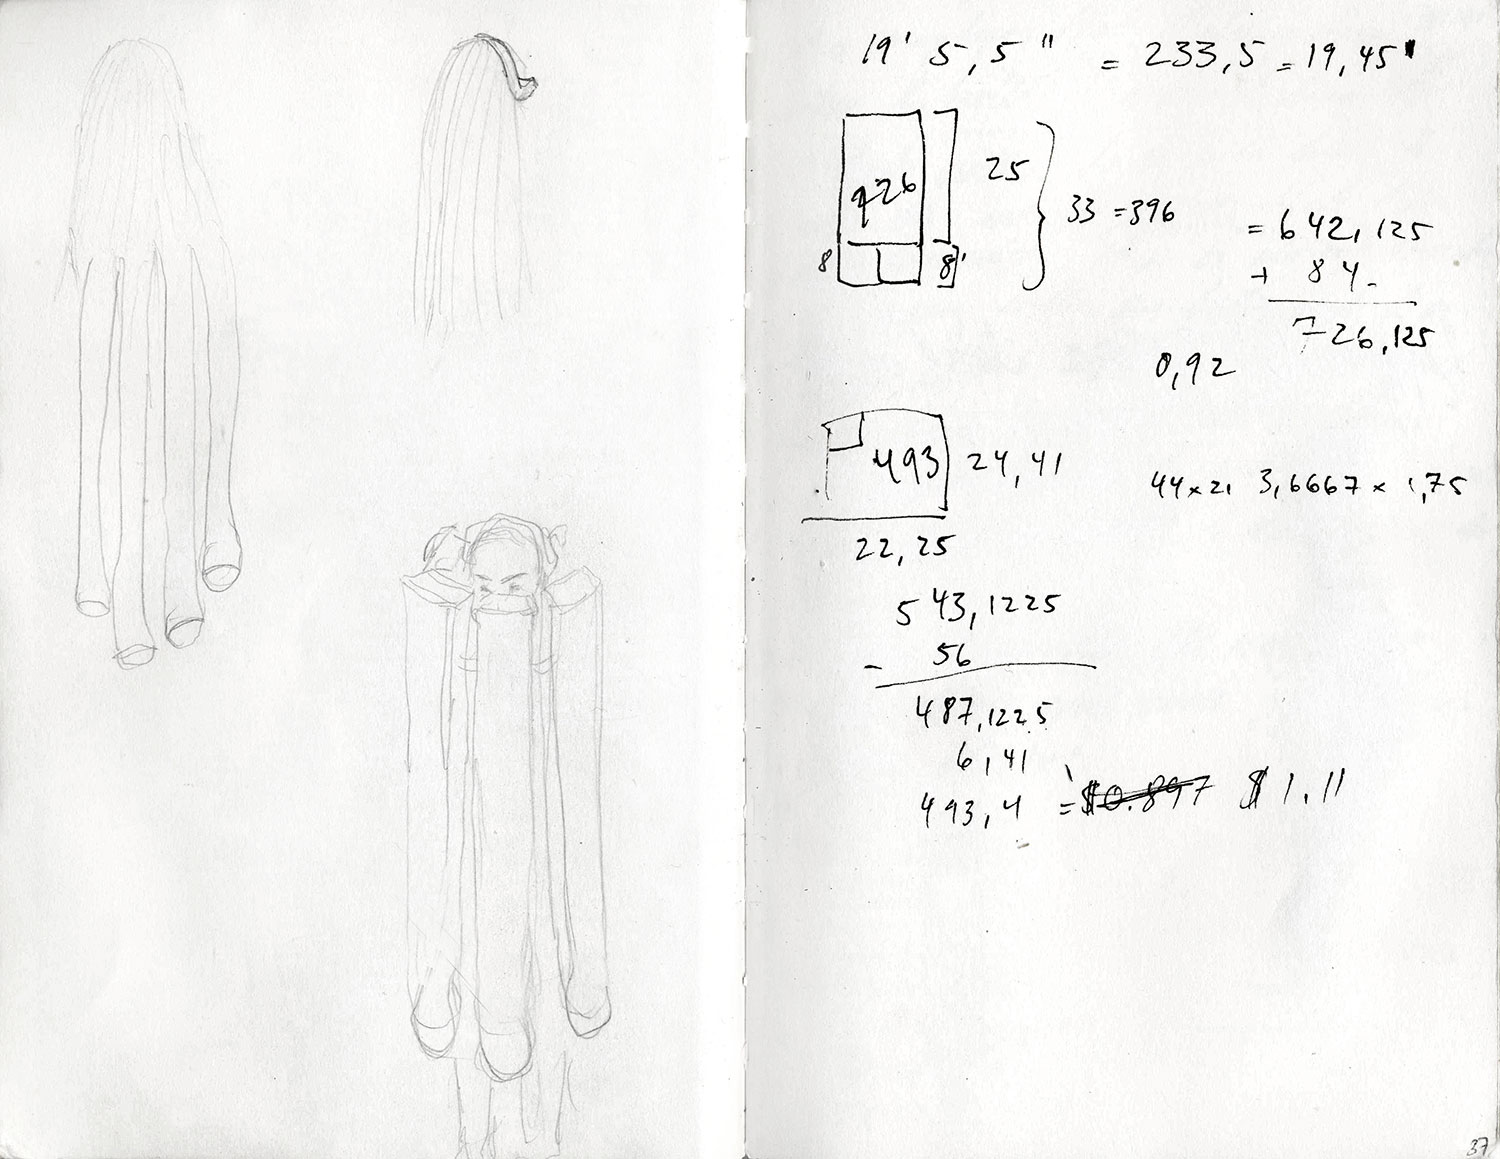 19' 5,5" = 233,5 = 19,45'
25
926
33 = 396
8
8'
= 642,125
+ 84.
726,125
0,92
493
24,41
44 x 21 3,6667 x 1,75
22,25
543,1225
- 56
487,1225
6,41
493,4 = $0.897 $1.11
37